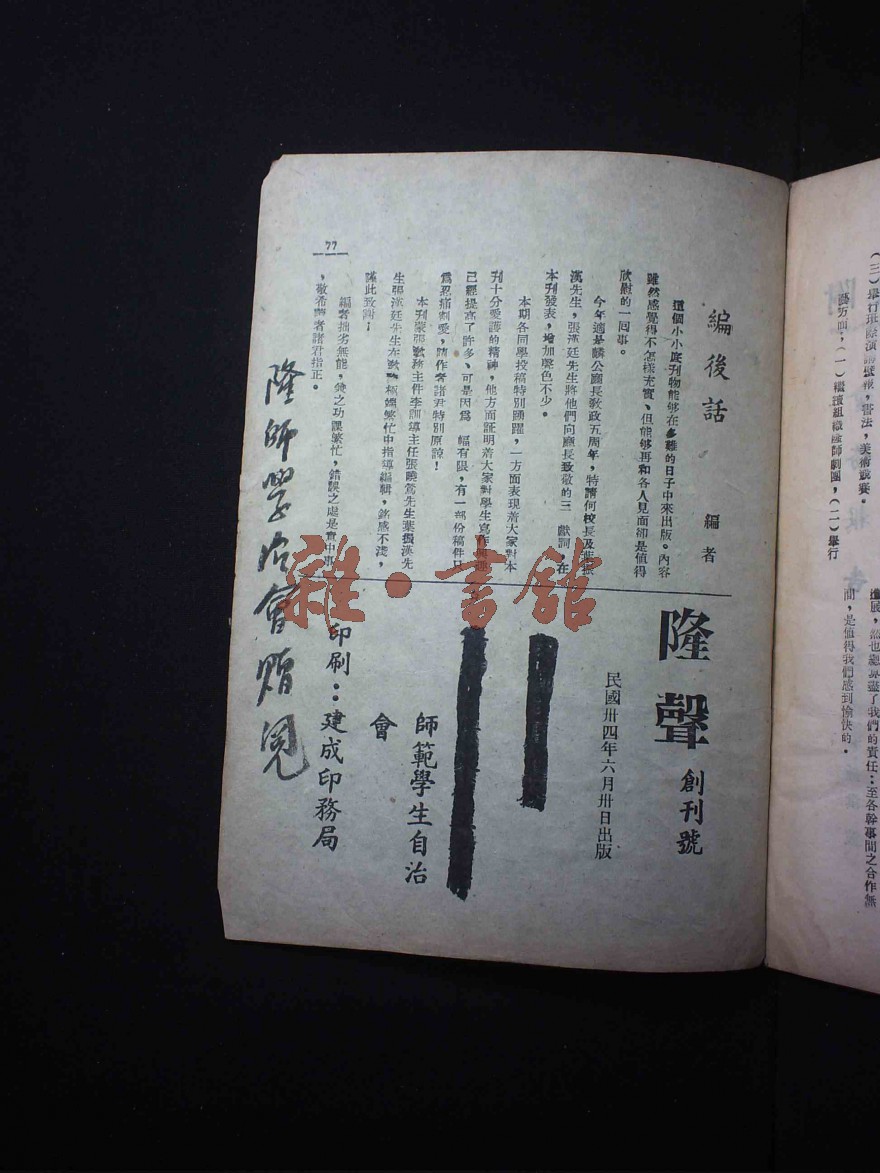 (三)舉行班際演講壁報,書法,美術競賽。
進展,然也總算盡了我們的責任:至各幹事間之合作無
間,是值得我們感到愉快的。
編後話
編者
這個小小底刊物能够在多難的日子中來出版。內容
雖然感覺得不怎樣充實、但能够再和各人見面卻是值得
欣慰的一囘事。
今年適是麟公廳長敎政五周年,特請何校長及葉振
漢先生,張漢廷先生將他們向廳長致敬的三 獻詞,在
本刊發表,增加聲色不少。
本期各同學投稿特別踴躍,一方面表現着大家對本
刊十分愛護的精神,他方面証明着大家對學生寫作
已經提高了許多、可是因爲 幅有限,有一部份稿件只
爲忍痛割愛,請作者諸君特別原諒!
本刊蒙張敎務主件李訓導主任張曉鶯先生葉振漢先
生張漢廷先生在 極頻繁忙中指導編輯,銘感不淺,
謹此致謝!
編者拙劣無能,兼之功課繁忙,錯誤之處是實中事
,敬希 者諸君指正。
77
隆聲
創刊號
民國卅四年六月卅日出版
師範學生自治
會
印刷:建成印務局
隆師學治會贈閱
雜·書館